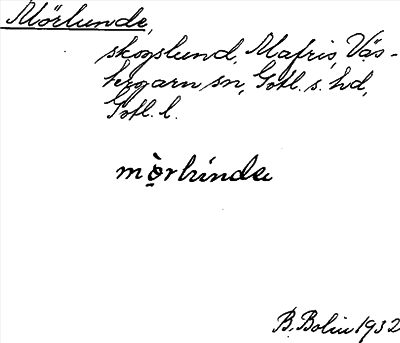 Mörlunde,
skogslund, Mafris, Väs-
kergarn sn, Gotl. s. hd,
Gotl. l.
B. Bolin 1932